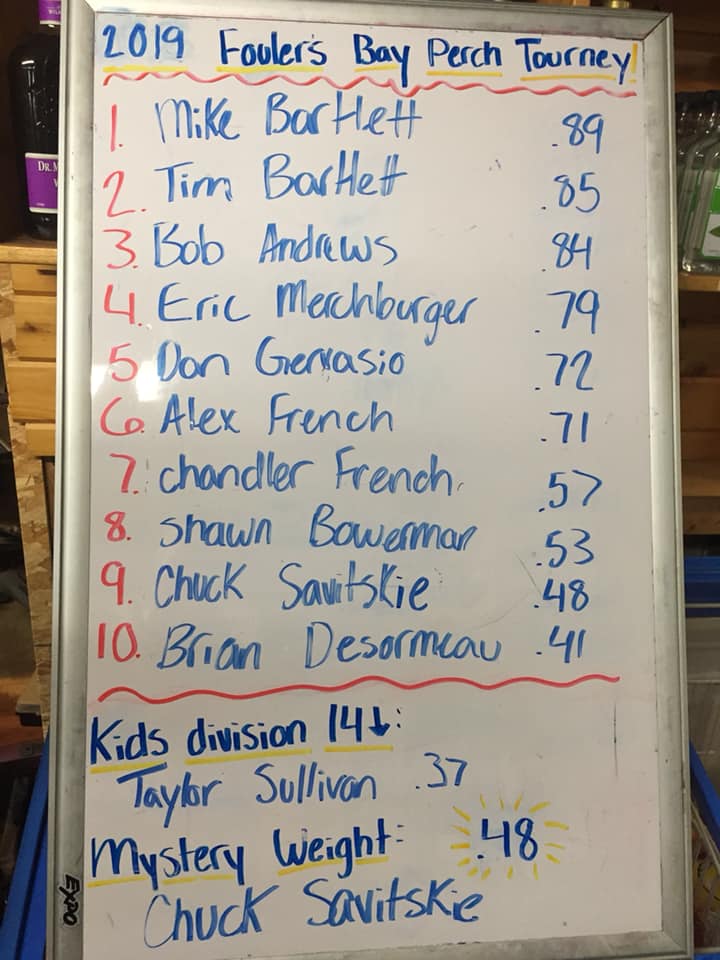 2019 Fowler's Bay Perch Tourney!
1. Mike Bartlett .89
2. Tim Bartlett .85
3. Bob Andrews .84
4. Eric Merchburger .79
5 Dan Gervasio .72
6. Alex French .71
7. Chandler French .57
8. Shawn Bowerman .53
9. Chuck Savitskie .48
10. Brian Desormeau .41
Kids division 14↓:
Taylor Sullivan .37
Mystery Weight: .48
Chuck Savitskie
EXPO
DR. M